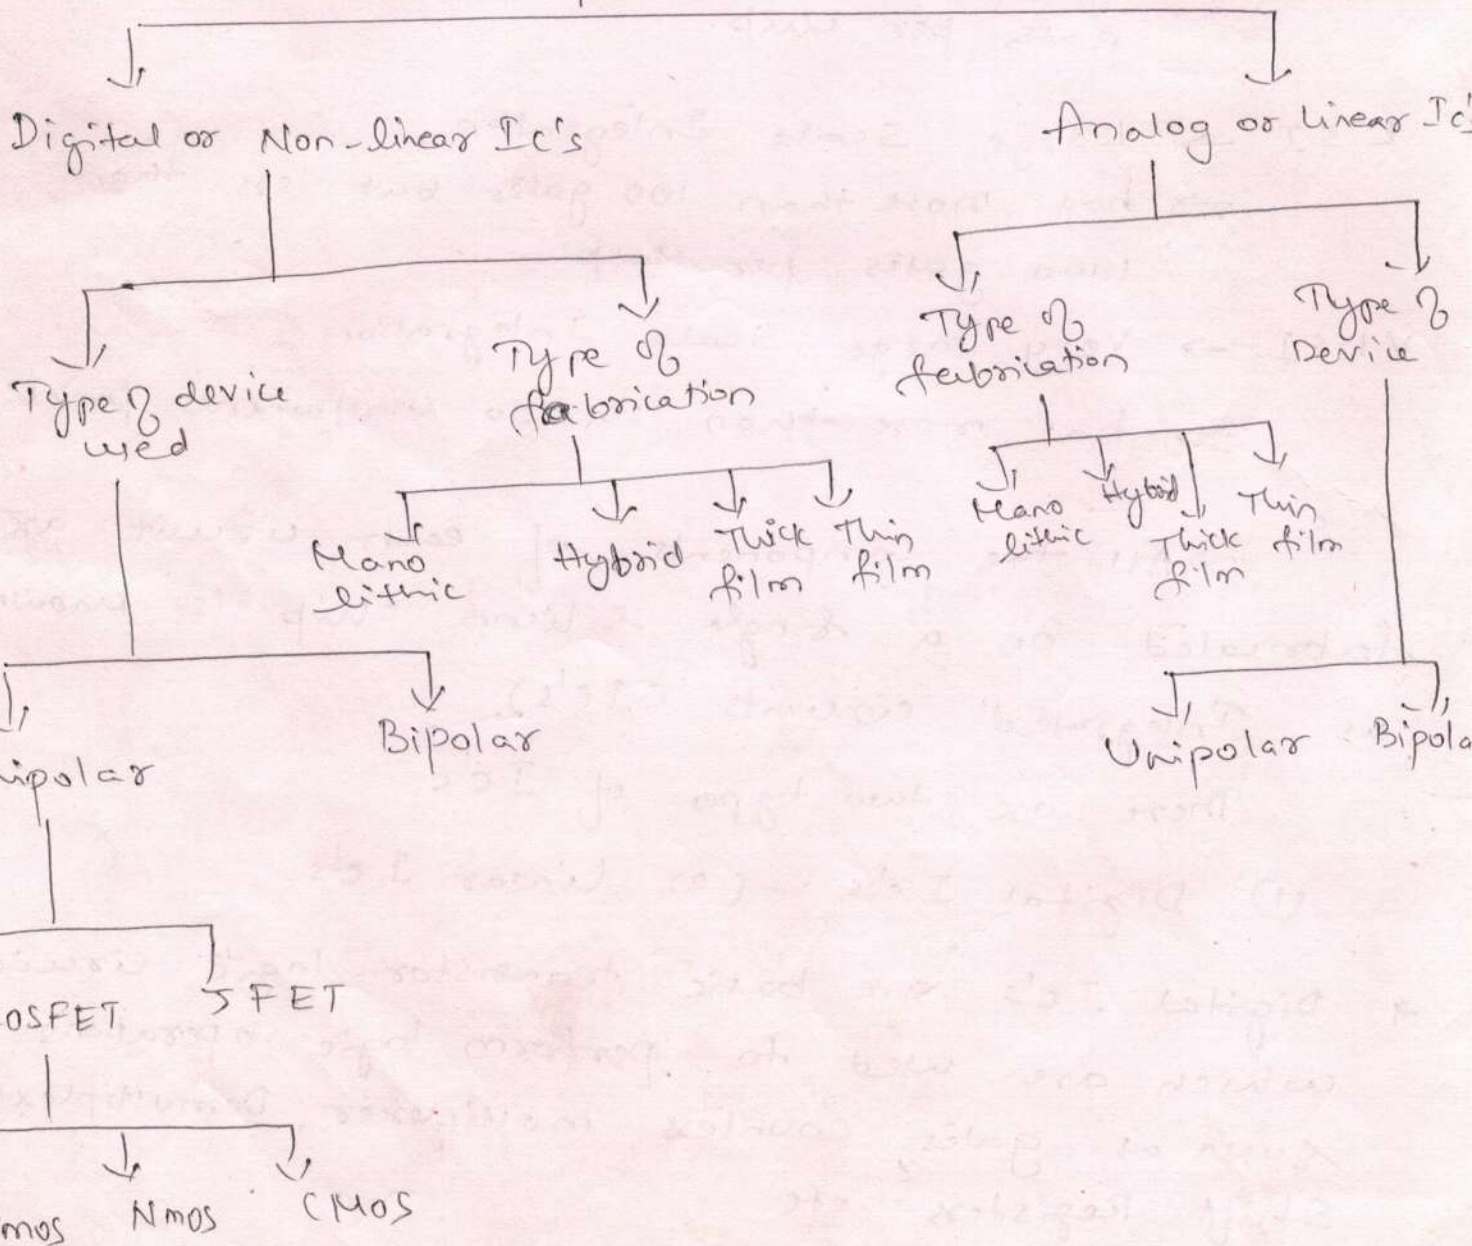 Digital or Non-linear Ic's
Analog or linear Ic's
Type of device
used
Type of
fabrication
Type of
fabrication
Type of
Device
Mano
lithic
Hybrid
Thick
film
Thin
film
Mano
lithic
Hybrid
Thick
film
Thin
film
nipolar
Bipolar
Unipolar
Bipola
OSFET
JFET
mos
Nmos
CMOS